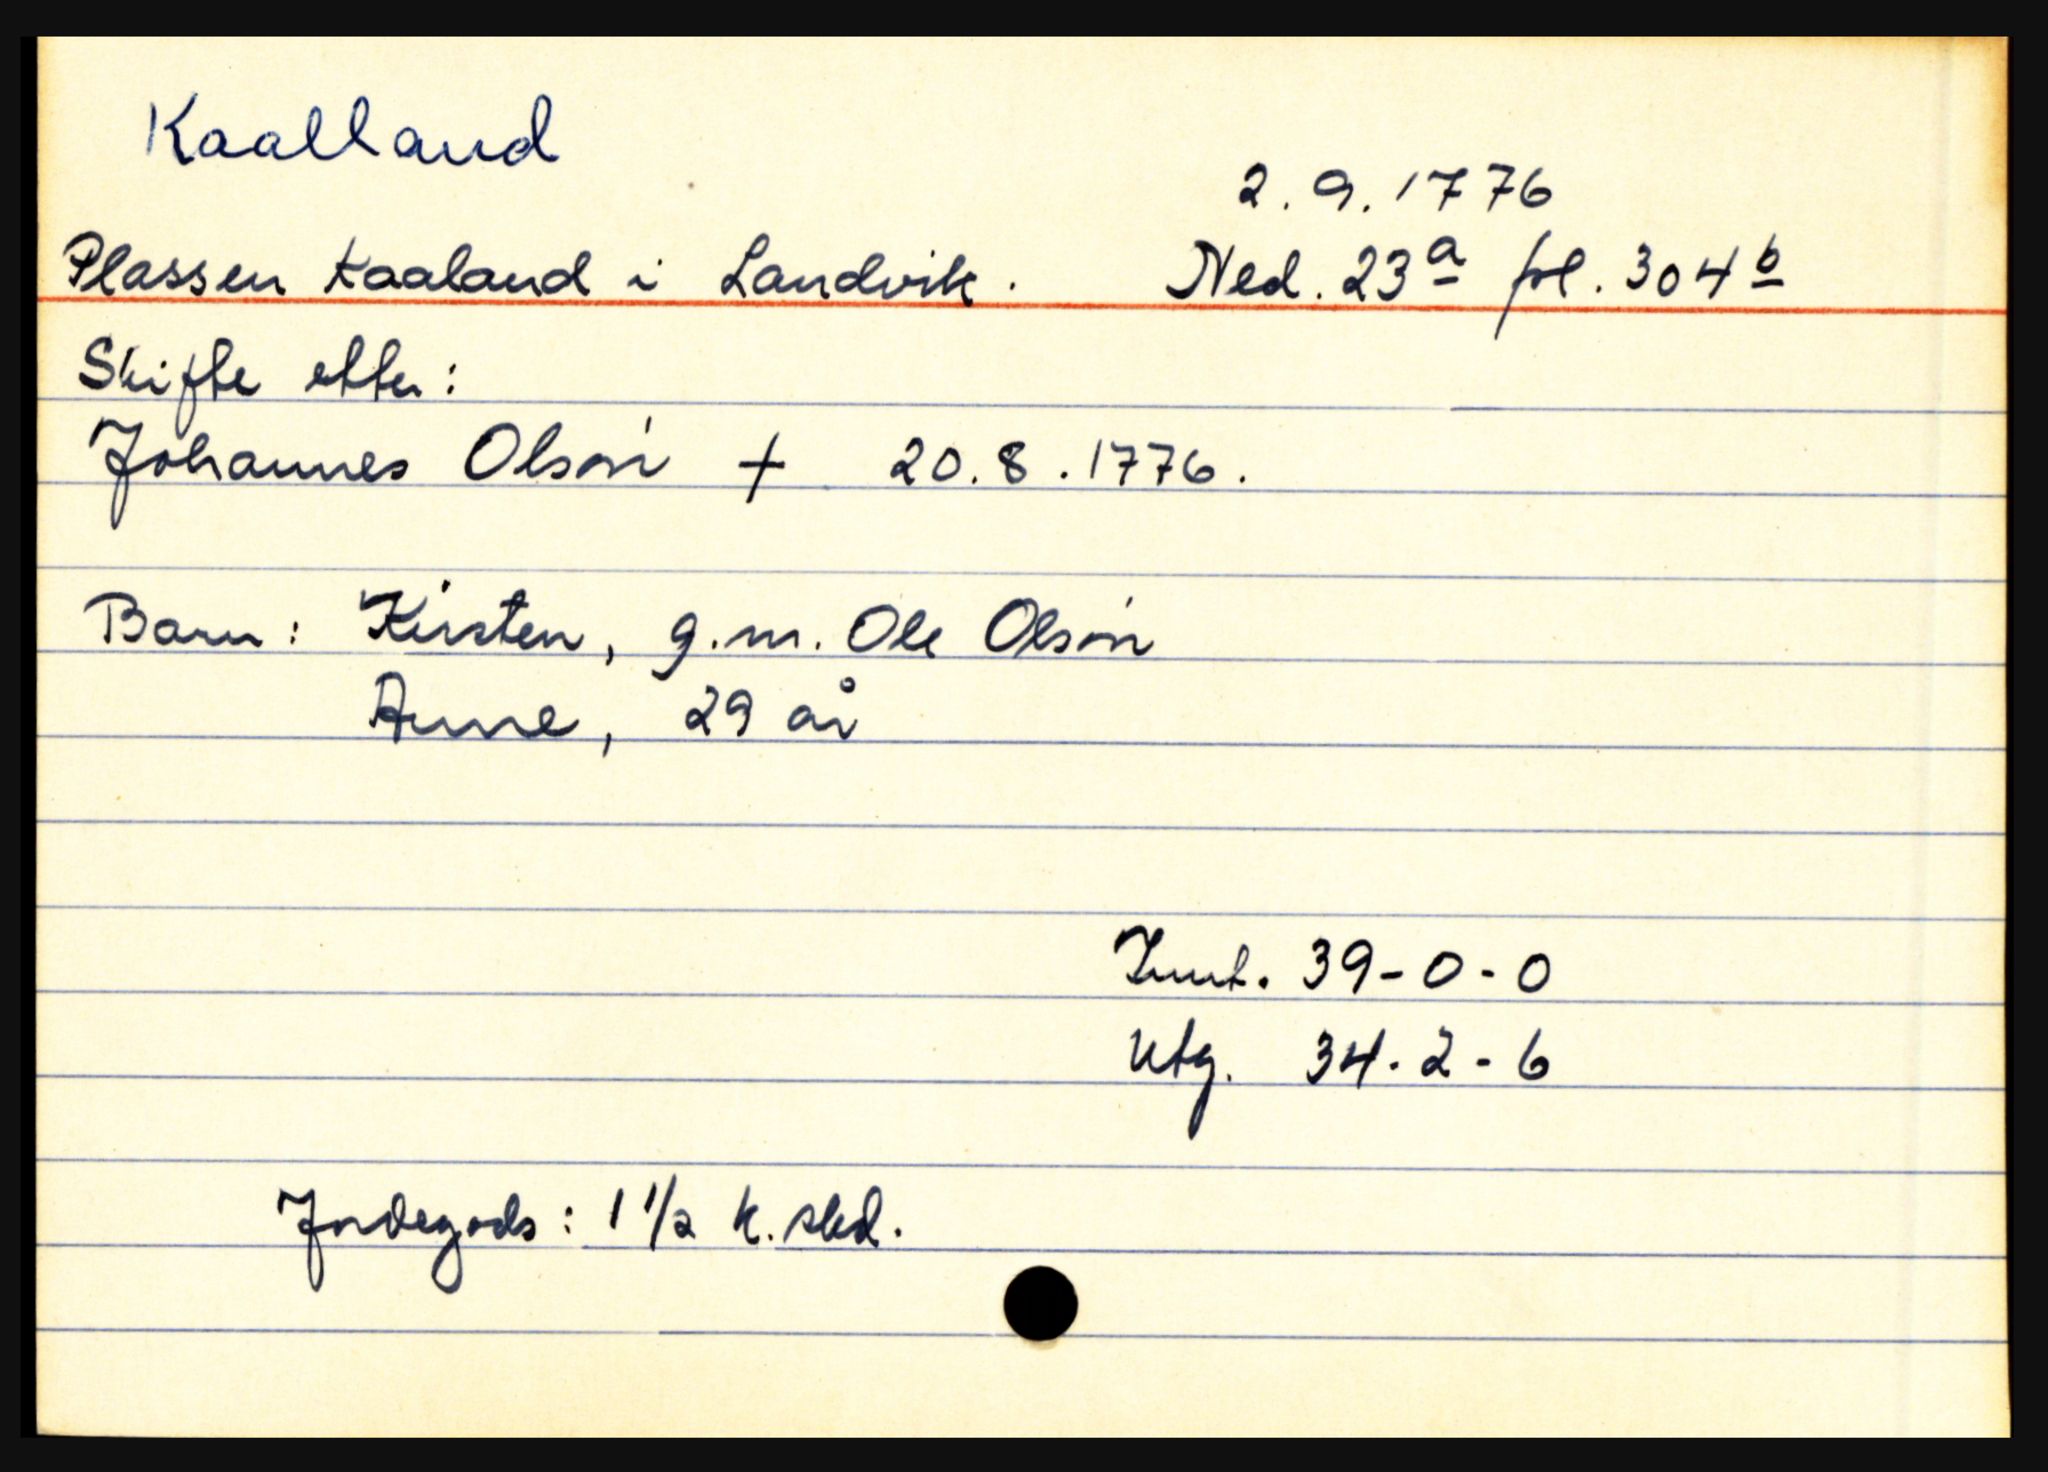 Kaalland
2.9.1776
Plassen Kaaland i Landvik. Ned. 23a fol. 304b
Skifte etter:
Johannes Olson † 20.8.1776.
Barn: Kirsten, g.m. Ole Olson
Anne, 29 år
Innt. 39-0-0
Utg. 34-2-6
Jordegods: 1 1/2 k. skd.